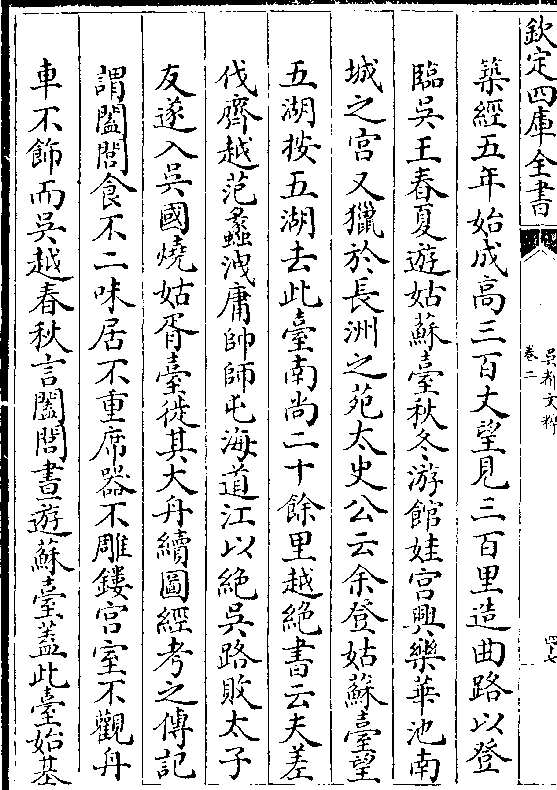 欽定四庫全書
吳都文粹
卷二
四七
築經五年始成高三百丈望見三百里造曲路以登
臨吳王春夏遊姑蘇臺秋冬游館娃宮興樂華池南
城之宮又獵於長洲之苑太史公云余登姑蘇臺望
五湖按五湖去此臺南尚二十餘里越絶書云夫差
伐齊越范蠡洩庸帥師屯海道江以絶吳路敗太子
友遂入吳國燒姑胥臺徙其大舟續圖經考之傳記
謂闔閭食不二味居不重席器不雕鏤宫室不觀舟
車不飾而吳越春秋言闔閭晝遊蘇臺蓋此臺始基